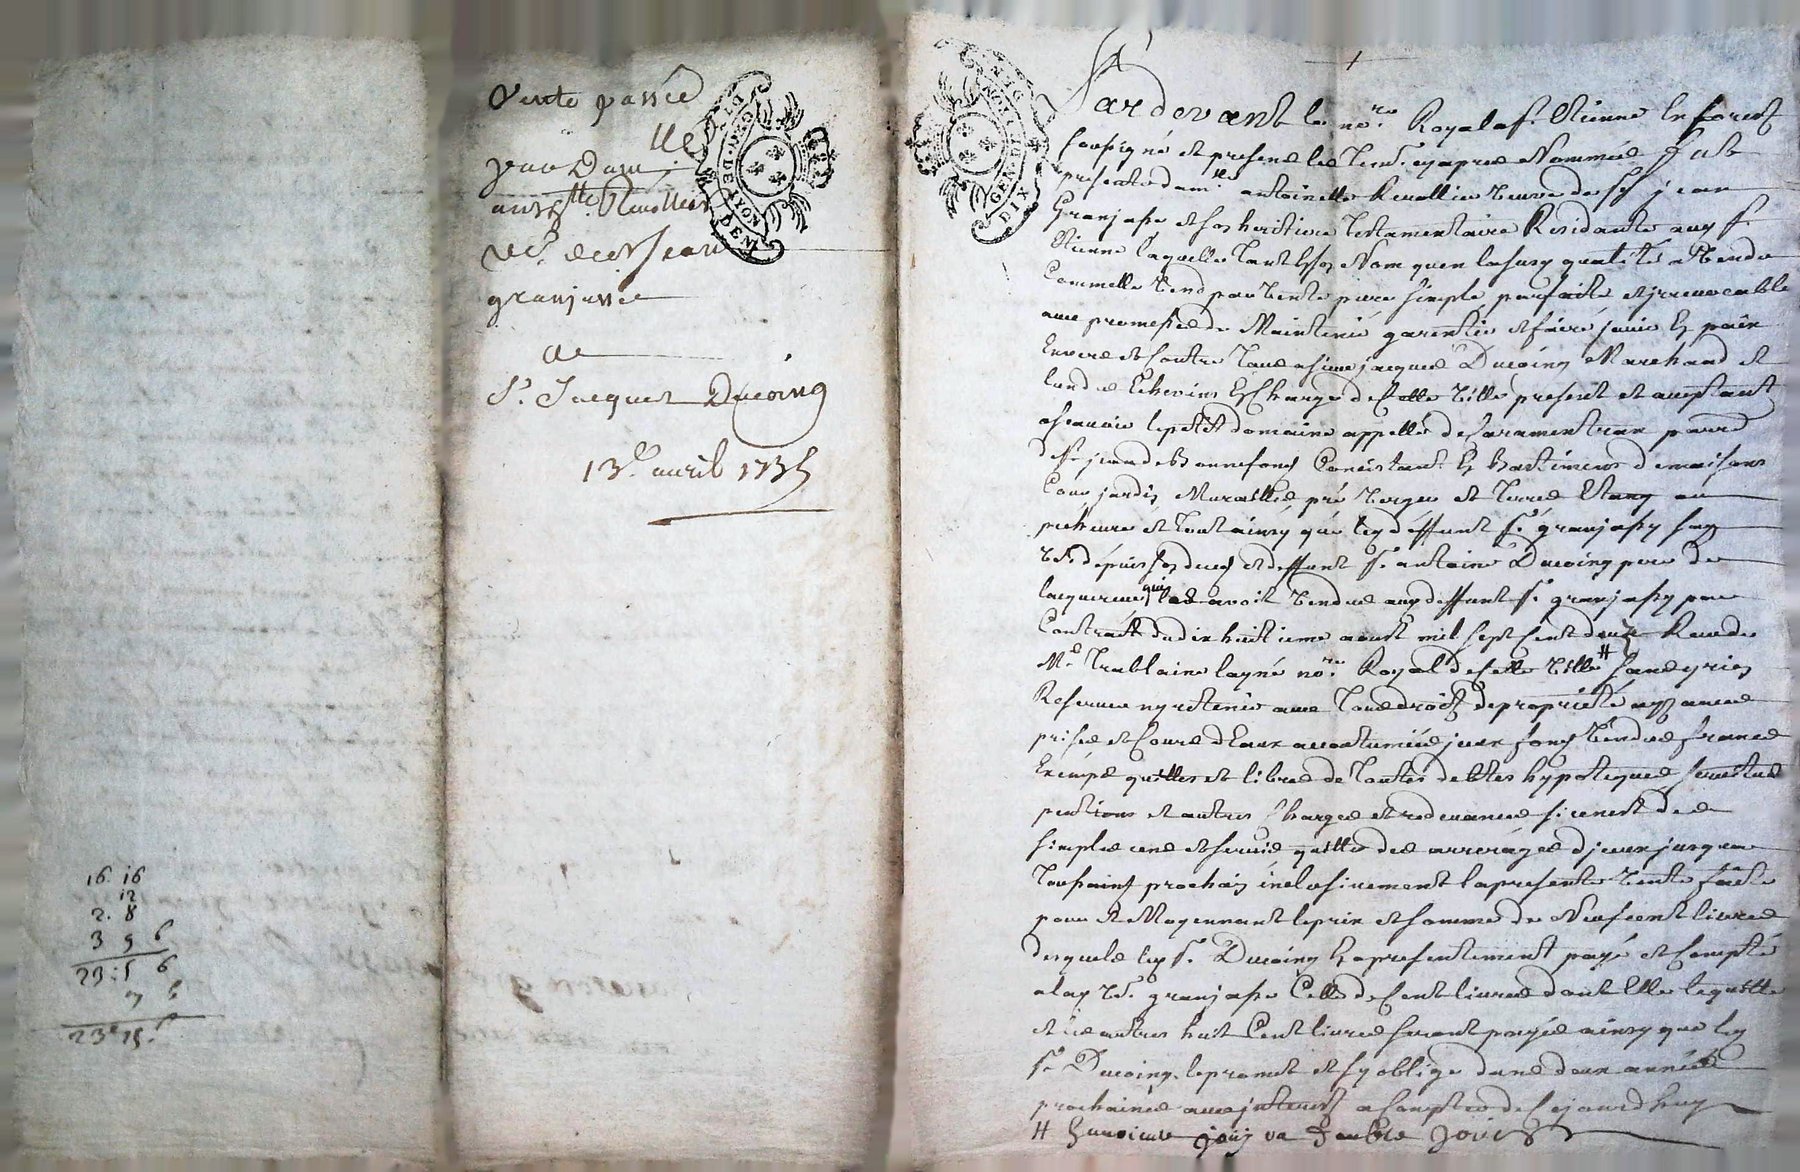 16. 16
12
2. 8
3 9 6
23: 5 6
6
23 15. 6
Vente passée
par Dam.lle
Revollier
ve. de Sr Jean
granjasse
a
Sr. Jacques Ducoing
13e. auril 1735
GEN. DE LYON
DEN
GEN
DIX
Pardevant le no.re Royal a St. Etienne en forest
soussigné et presens les tem. cyapres Nommés fut
presente dam.lle antoinette Revollier veuve de Sr jean
Granjasse et son heritiere testamentaire Residante aud St.
Etienne laquelle tant en son Nom quen lasusd qualité a Vendu
Comme elle Vend par Vente pure simple parfaite et jrreuocable
auec promesse de Maintenir garentir et faire jouir En paix
Enuers et Contre tous a sieur jacques Ducoing Marchand et
lun des Echevins En Charge de Cette Ville present et acceptant
asçauoir le petit domaine appellé de
de St. jean de Bonnefons Consistant En Bastiments de maisons
Cour jardin Murailles, pré Verger et terres
et tout ainsy que led deffunt Sr. granjasse
Ve. depuis son deces et deffunt Sr. antoine Ducoing pere de
lacquereur qui les avoit Vendus aud deffunt Sr. granjasse par
Contrat du dix huitieme aoust mil sept Cent douze Receu de
Me. Trablaine layné no.re Royal de Cette Ville # sans y rien
Reseruer ny retenir auec tous droits de proprieté aysances
prises et Cours d'Eaux accoutumées jceux fons Vendus francs
Exempts quittes et libres de toutes debtes hypoteques seruitudes
pentions et autres Charges et redeuances si cenest des
simples cens et seruis quitte des arrerages djceux jusqua
Toussaint prochain inclusiuement la presente Vente faite
pour et Moyennant le prix et somme de Neuf cent liures
desquels led Sr. Ducoing En presentement payé et Compté
a lad Ve. granjasse Celle de Cent liures dont Elle le quitte
et les autres huit Cent liures seront payés ainsy que led
Sr. Ducoing le promet et sy oblige dans deux années
prochaines auec jnterest a Compter de Cejourdhuy